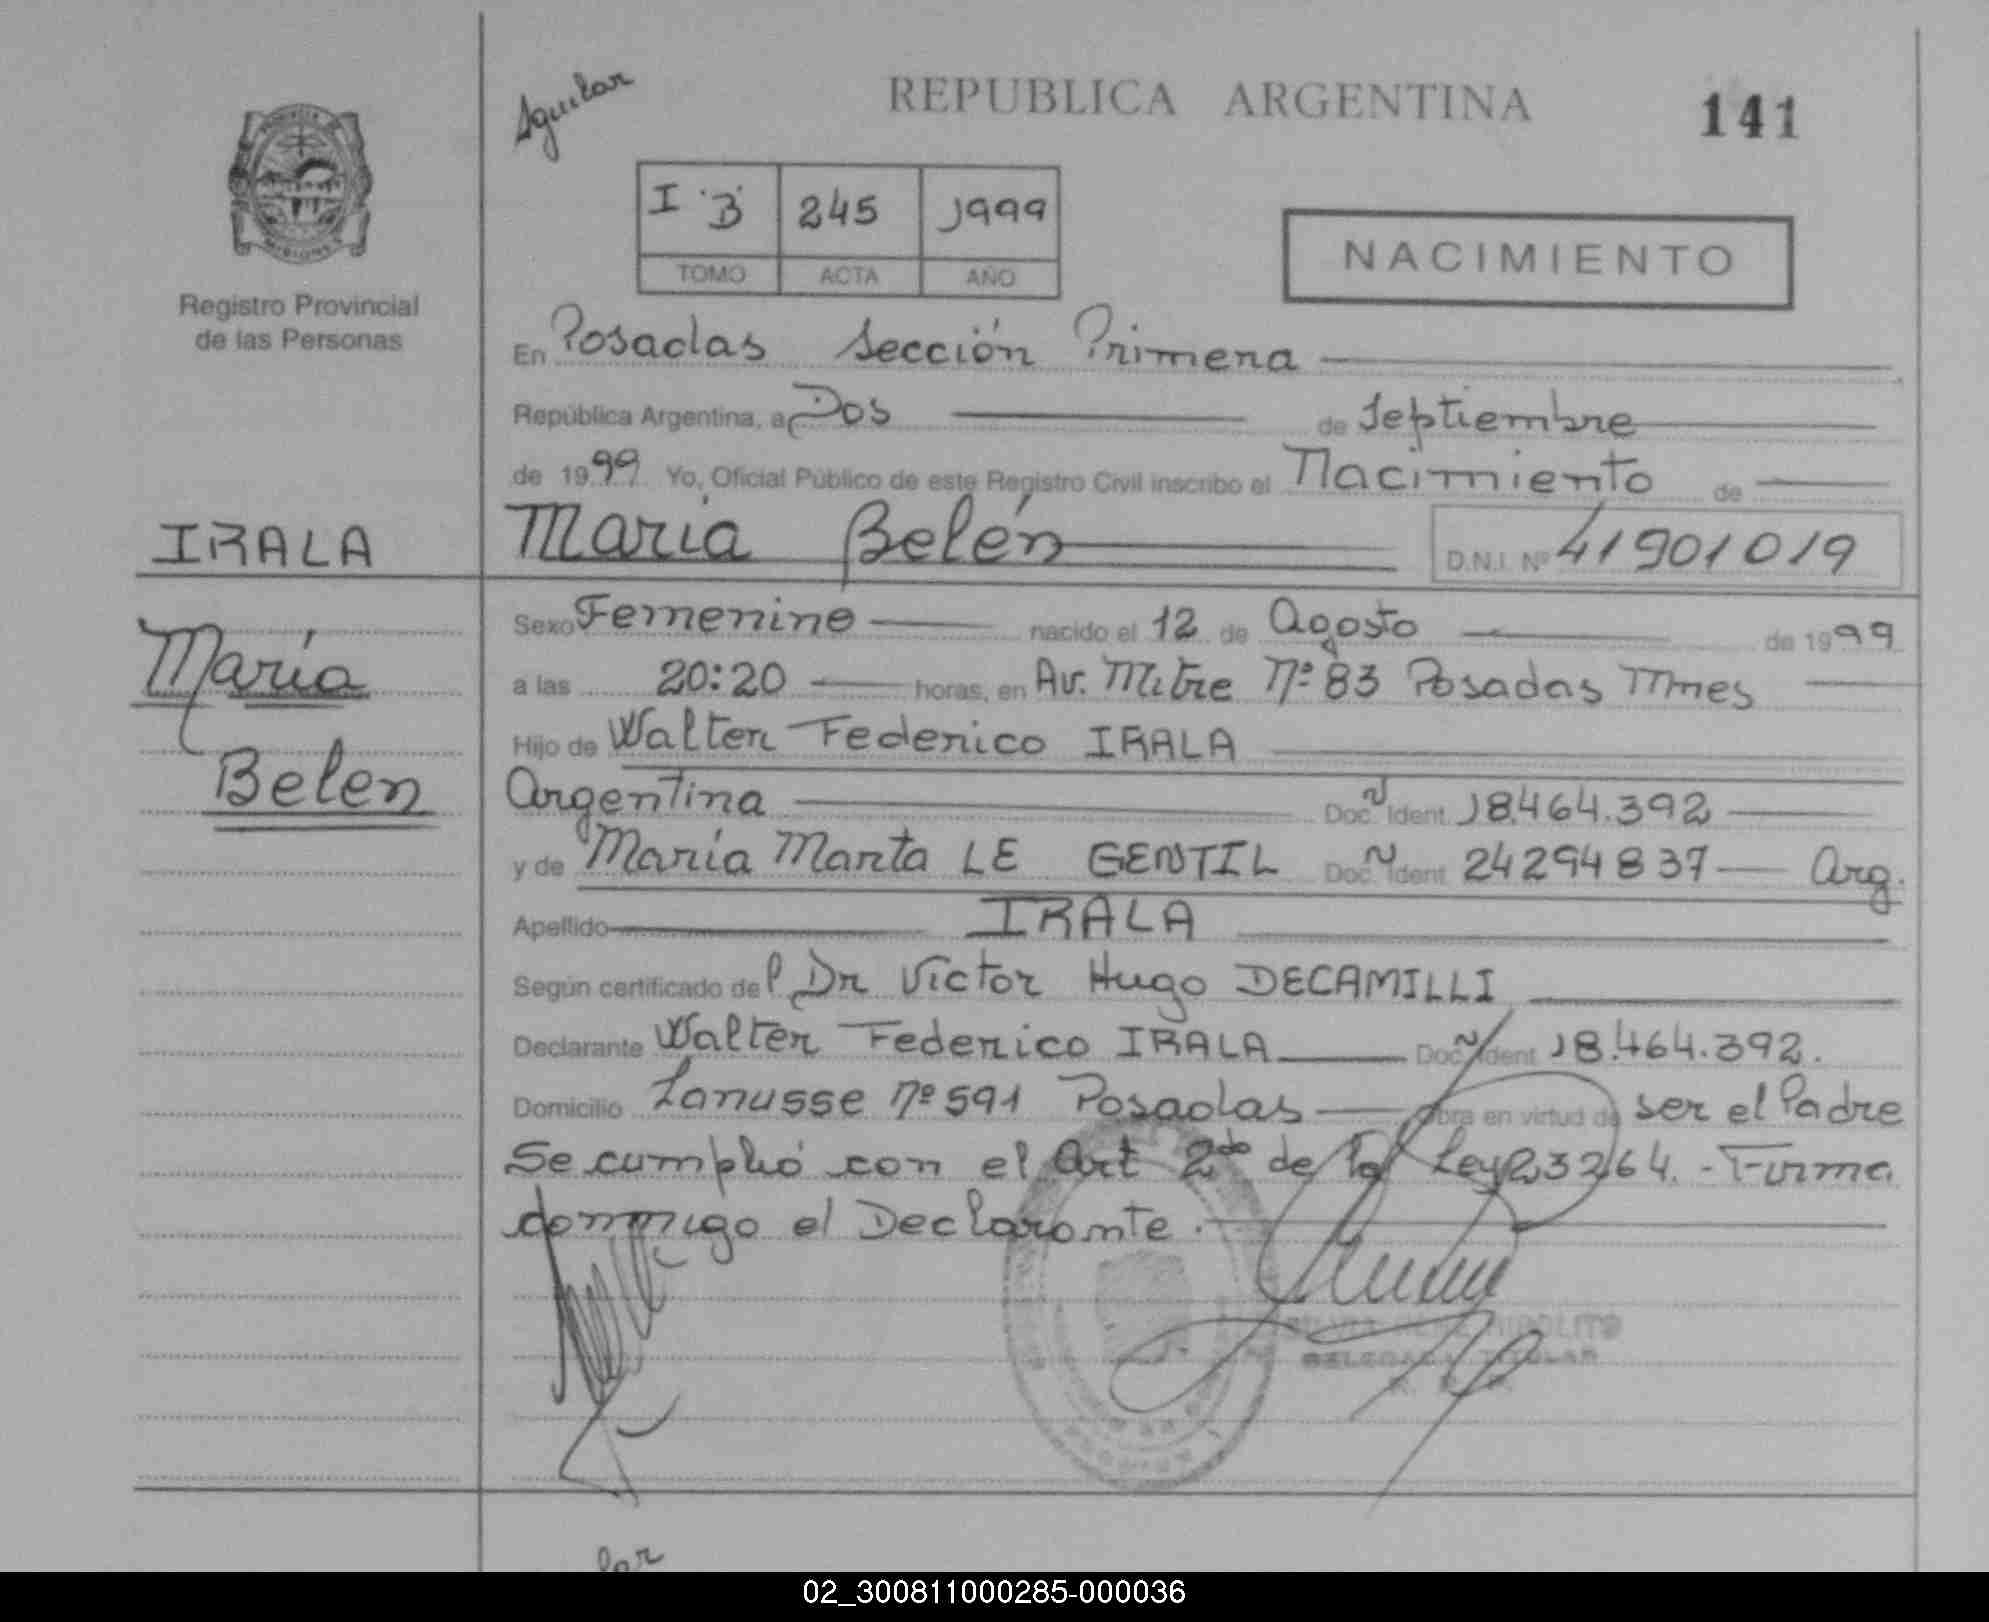 Aguilar
REPUBLICA ARGENTINA
141
I "B" 245 1999
TOMO ACTA AÑO
NACIMIENTO
PROVINCIA DE
MISIONES
Registro Provincial
de las Personas
En Posadas Sección Primera
República Argentina, a Dos de Septiembre
de 1999 Yo, Oficial Público de este Registro Civil inscribo el Nacimiento de
IRALA
María Belén D.N.I. Nº 41901019
María
Belen
Sexo Femenino nacido el 12 de Agosto de 1999
a las 20:20 horas, en Av. Mitre Nº 83 Posadas Mnes
Hijo de Walter Federico IRALA
Argentina Doc. Ident. 18.464.392
y de María Marta LE GENTIL Doc. Ident. 24294837 Arg.
Apellido IRALA
Según certificado del Dr Victor Hugo DECAMILLI
Declarante Walter Federico IRALA Doc. Ident 18.464.392.
Domicilio Lanusse Nº 591 Posadas obra en virtud de ser el Padre
Se cumplió con el Art 2do de la Ley 23264. - Firma
conmigo el Declarante.
02_300811000285-000036